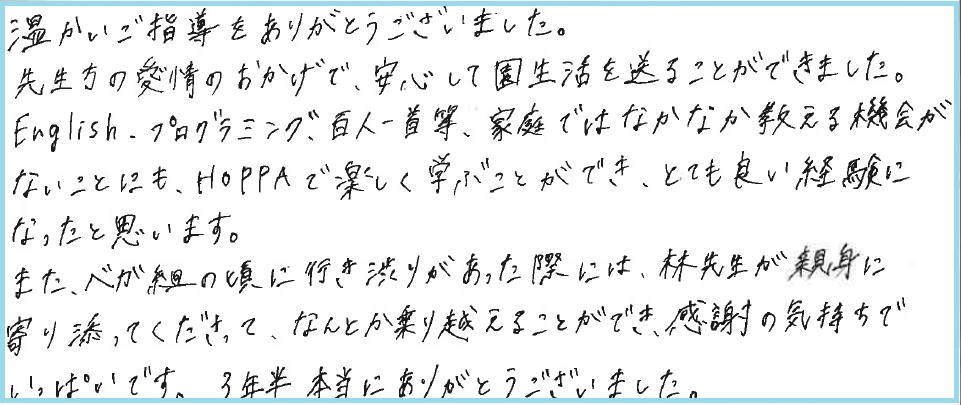 温かいご指導をありがとうございました。
先生方の愛情のおかげで、安心して園生活を送ることができました。
English、プログラミング、百人一首等、家庭ではなかなか教える機会が
ないことにも、HOPPAで楽しく学ぶことができ、とても良い経験に
なったと思います。
また、ベガ組の頃に行き渋りがあった際には、林先生が親身に
寄り添ってくださって、なんとか乗り越えることができ、感謝の気持ちで
いっぱいです。3年半本当にありがとうございました。